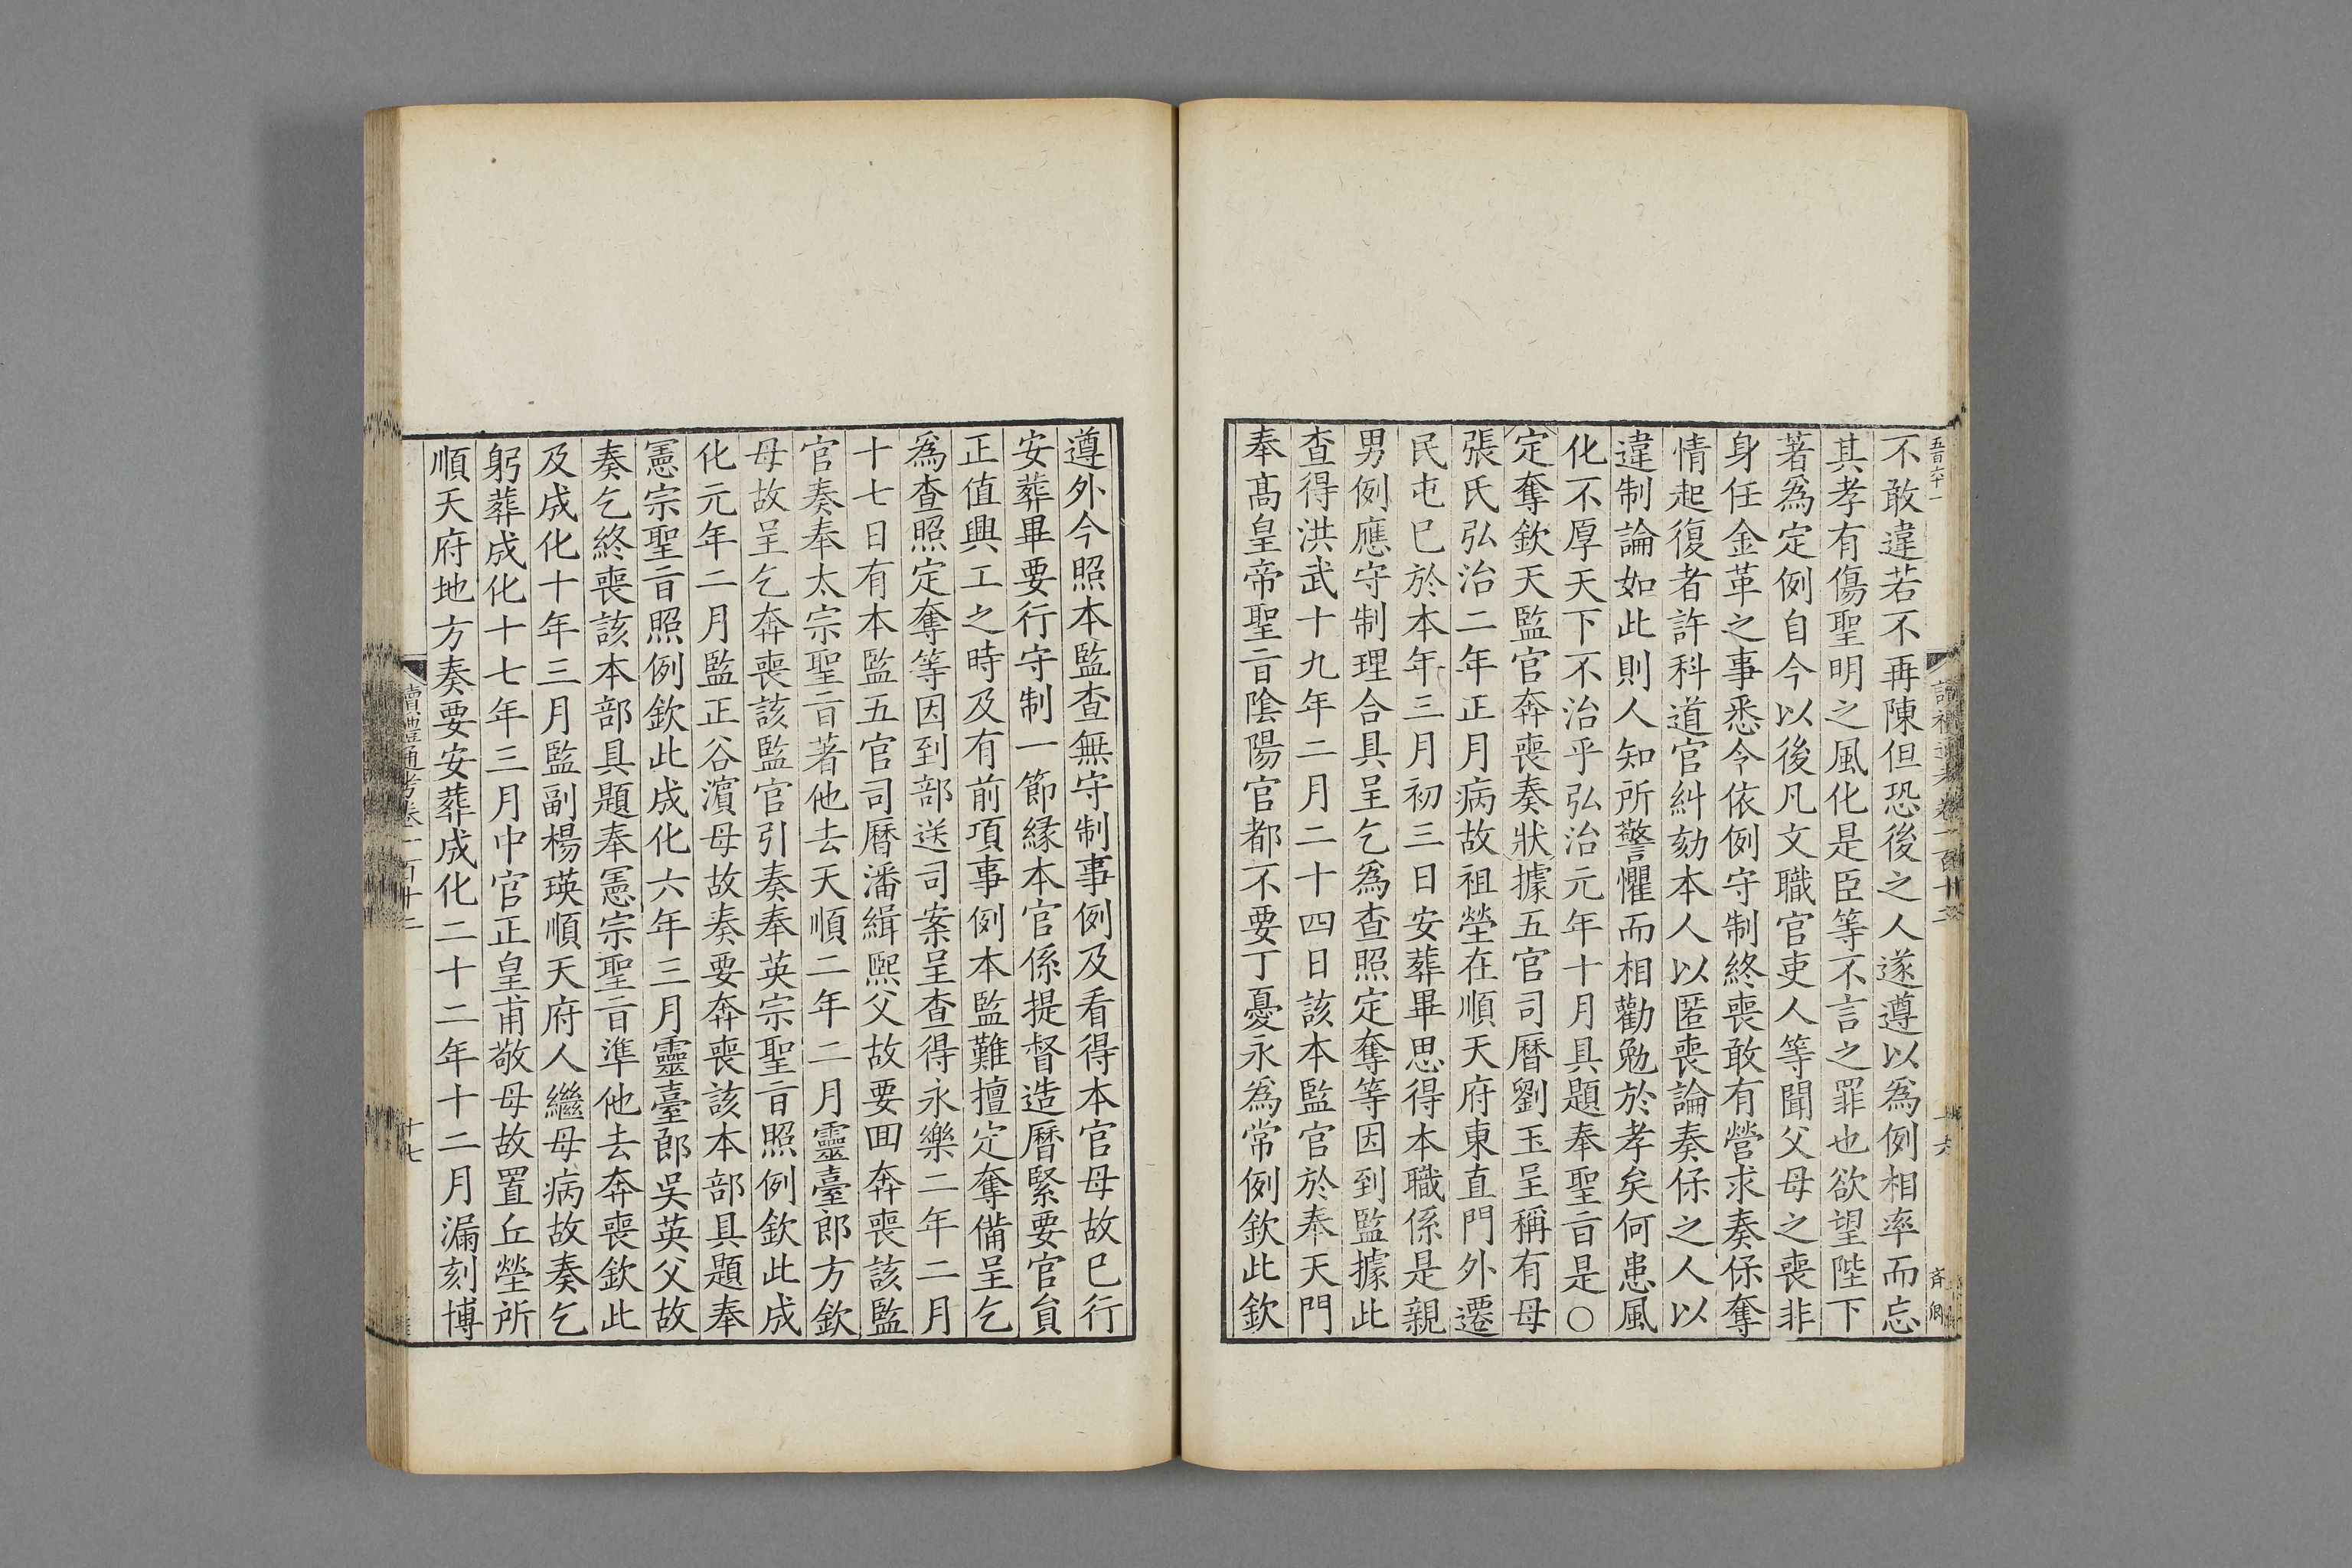 不敢違若不再陳但恐後之人遂遵以為例相率而忘
其孝有傷聖明之風化是臣等不言之罪也欲望陛下
著為定例自今以後凡文職官吏人等聞父母之喪非
身任金革之事悉令依例守制終喪敢有營求奏保奪
情起復者許科道官糾劾本人以匿喪論奏保之人以
違制論如此則人知所警懼而相勸勉於孝矣何患風
化不厚天下不治乎弘治元年十月具題奉聖旨是○
定奪欽天監官奔喪奏狀據五官司曆劉玉呈稱有母
張氏弘治二年正月病故祖塋在順天府東直門外遷
民屯已於本年三月初三日安葬畢思得本職係是親
男例應守制理合具呈乞為查照定奪等因到監據此
查得洪武十九年二月二十四日該本監官於奉天門
奉高皇帝聖旨陰陽官都不要丁憂永為常例欽此欽
遵外今照本監查無守制事例及看得本官母故已行
安葬畢要行守制一節緣本官係提督造曆緊要官員
正值興工之時及有前項事例本監難擅定奪備呈乞
為查照定奪等因到部送司案呈查得永樂二年二月
十七日有本監五官司曆潘緝熙父故要囬奔喪該監
官奏奉太宗聖旨著他去天順二年二月靈臺郎方欽
母故呈乞奔喪該監官引奏奉英宗聖旨照例欽此成
化元年二月監正谷濵母故奏要奔喪該本部具題奉
憲宗聖旨照例欽此成化六年三月靈臺郎吳英父故
奏乞終喪該本部具題奉憲宗聖旨準他去奔喪欽此
及成化十年三月監副楊瑛順天府人繼母病故奏乞
躬葬成化十七年三月中官正皇甫敬母故置丘塋所
順天府地方奏要安葬成化二十二年十二月漏刻博
五百六十一
讀禮通考卷一百十二
十六
讀禮通考卷一百十二
十七